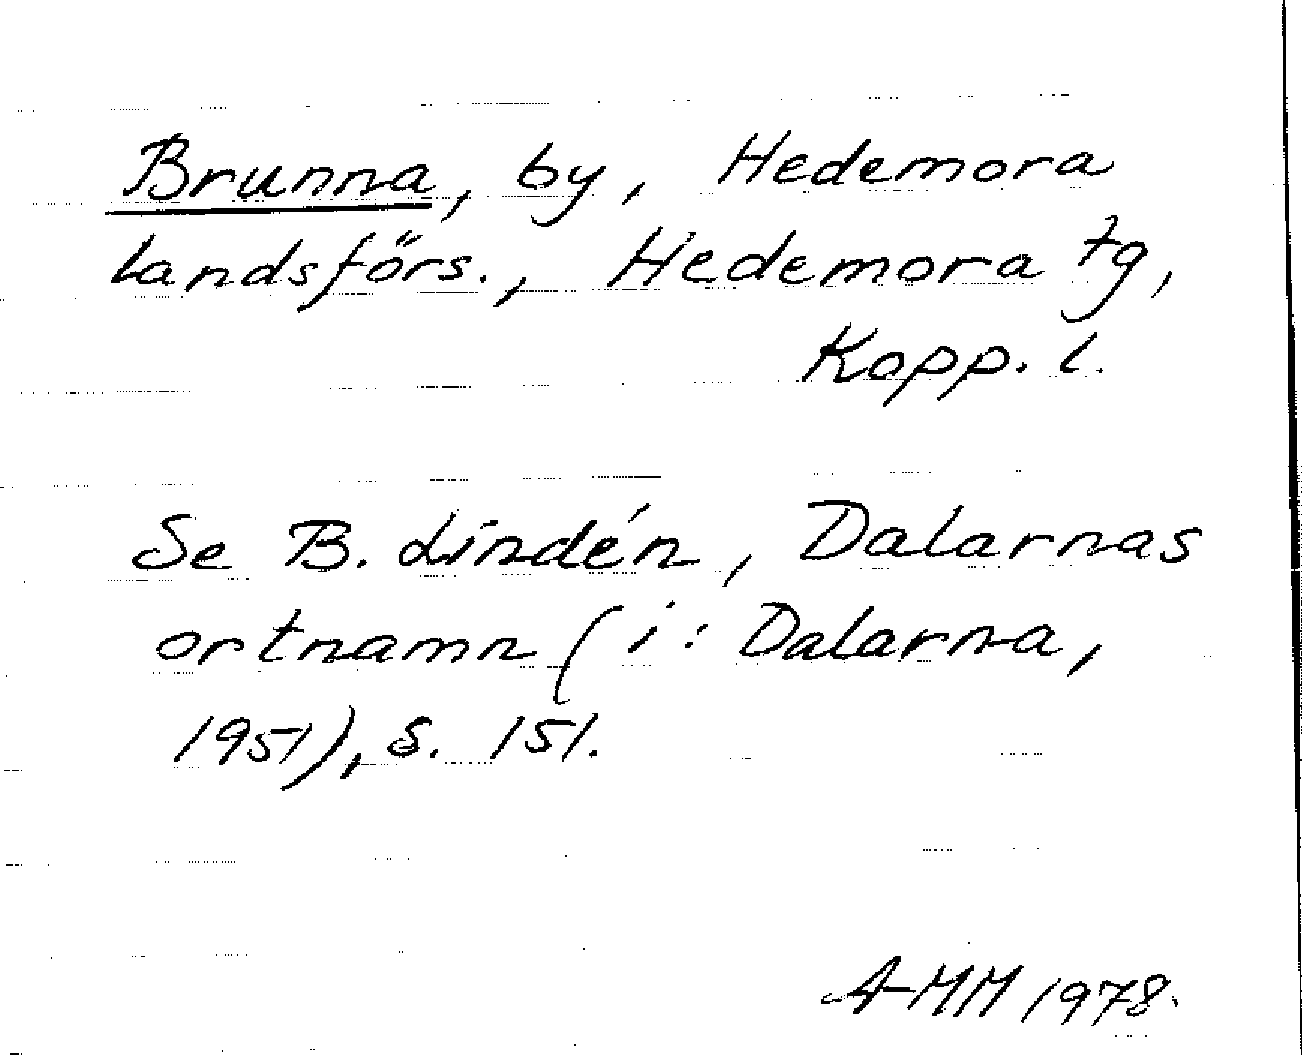 Brunna, by, Hedemora
landsförs., Hedemora tg,
Kopp. l.
Se B. Lindén, Dalarnas
ortnamn (i: Dalarna,
1951), s. 151.
A-MM 1978.